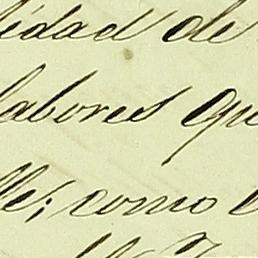 idad de
labores qu
lle; como